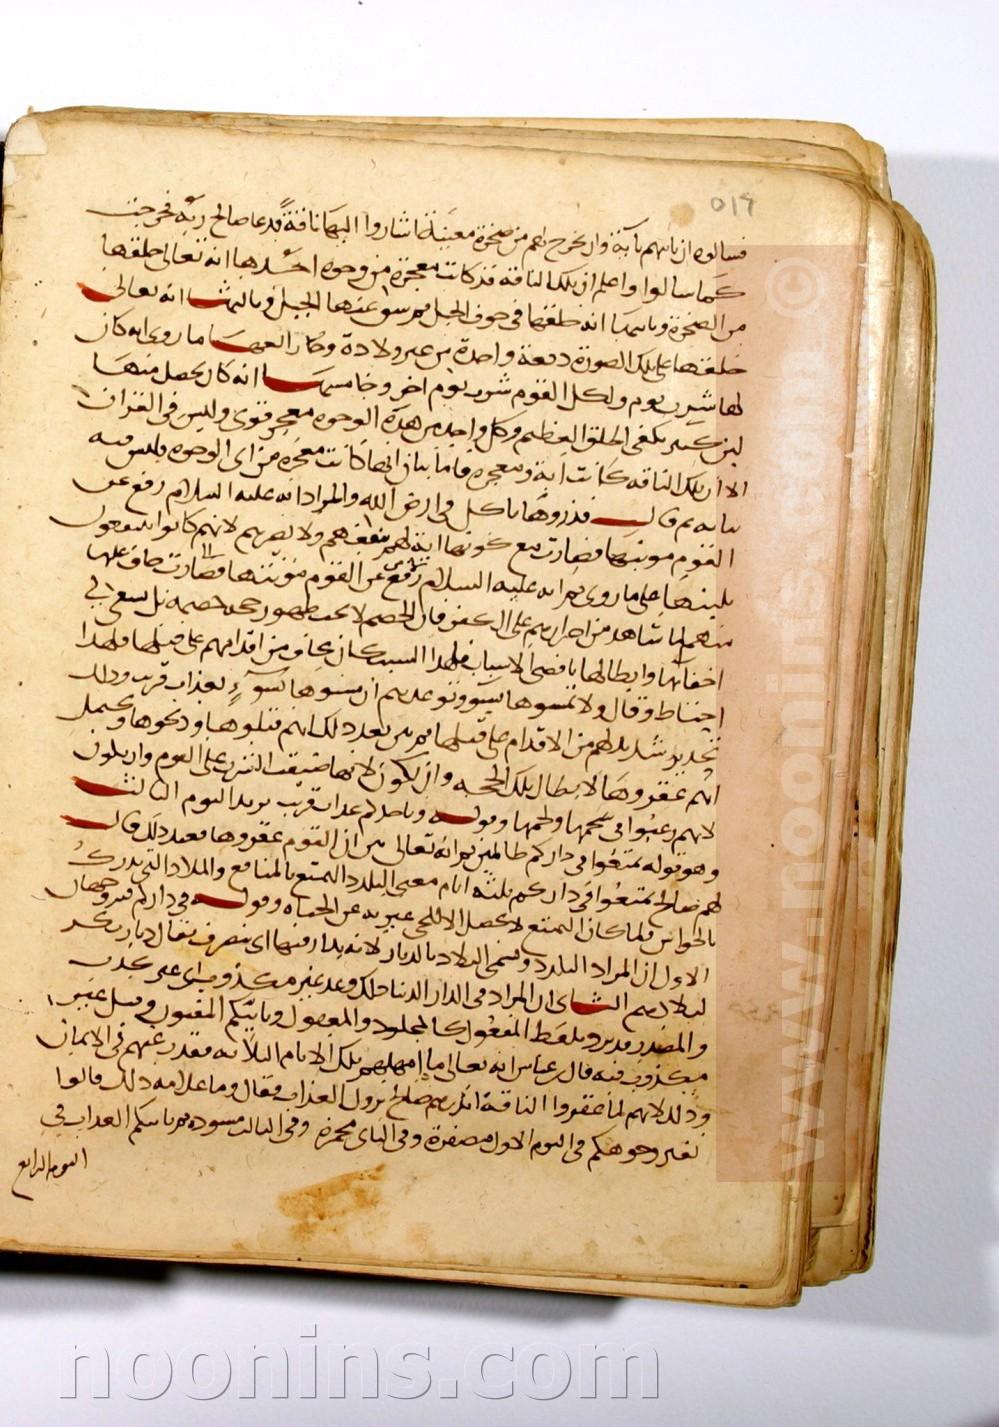 ٥١٦
فسالوه ان ياتيهم باية وان يخرج لهم من صخرة معينة اشاروا اليها ناقة فدعا صالح ربه فخرجت
كما سالوا واعلم ان تلك الناقة قد كانت معجزة من وجوه احدها انه تعالى خلقها
من الصخرة وثانيها انه خلقها في جوف الجبل ثم شق عنها الجبل وثالثها انه تعالى
خلقها على تلك الصورة دفعة واحدة من غير ولادة ورابعها ما روى انه كان
لها شرب يوم ولكل القوم شرب يوم اخر وخامسها انه كان يحصل منها
لبن كثير يكفي الخلق العظيم وكل واحد من هذه الوجوه معجز قوي وليس في القران
الا ان تلك الناقة كانت اية ومعجزة فاما بيان انها كانت معجزة من اى الوجوه فليس فيه
بيانه ثم قال فذروها تاكل في ارض الله والمراد انه عليه السلام رفع عن
القوم مونتها فصارت مع كونها اية لهم تنفعهم ولا تضرهم لانهم كانوا ينتفعون
بلبنها على ما روى ثم انه عليه السلام رفع عن القوم مونتها فصارت خاف عليها
منهم لما شاهد من اصرارهم على الكفر فان الخصم لا يحب ظهور حجة خصمه بل يسعى في
اخفائها وابطالها باقصى الاسباب فلهذا السبب كان يخاف من اقدامهم على قتلها فلهذا
احتاط وقال ولا تمسوها بسوء وتوعدهم ان مسوها بسوء بعذاب قريب وذلك
تحذير شديد لهم من الاقدام على قتلها ثم بين بعد ذلك انهم قتلوها وذبحوها ويحتمل
انهم عقروها لابطال تلك الحجة وان يكون لانها ضيقت الشرب على القوم وان يكون
لانهم رغبوا في شحمها ولحمها وقوله وياخذكم عذاب قريب يريد اليوم الثالث
وهو قوله تمتعوا في داركم ثم انه تعالى بين ان القوم عقروها فعند ذلك قال
لهم صالح تمتعوا في داركم ثلثة ايام معنى التمتع التلذذ بالمنافع والملاذ التي يدرك
بالحواس فلما كان التمتع لا يحصل الا للحي عبر به عن الحياه وقوله في داركم فيه وجهان
الاول ان المراد البلد وتسمى البلاد بالديار لانه يدار فيها اى يتصرف يقال ديار بكر
لبلادهم الثاني ان المراد في الدار الدنيا ذلك وعد غير مكذوب اى غير كذب
والمصدر قد يرد بلفظ المفعول كالمجلود والمعقول وبايكم المفتون وقيل غير
مكذوب فيه قال ابن عباس انه تعالى لما امهلهم تلك الايام الثلاثة فقد رغبهم في الايمان
وذلك لانهم لما عقروا الناقة انذرهم صالح بنزول العذاب فقال وما علامة ذلك قالوا
تغير وجوهكم في اليوم الاول مصفرة وفي الثاني محمرة وفي الثالث مسودة ثم ياتيكم العذاب في
اليوم الرابع
© www.noonins.com
noonins.com